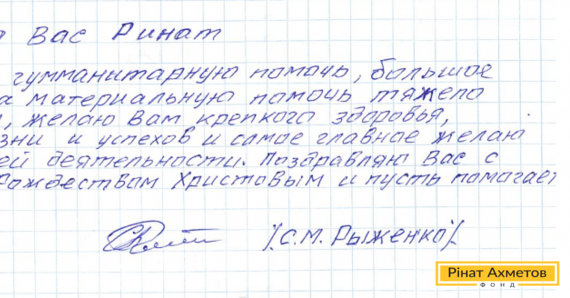 Вас Ринат
гумманитарную помочь, большое
а материальную помочь тяжело
, желаю Вам крепкого здоровья,
зни и успехов и самое главное желаю
ей деятельности. Поздравляю Вас с
Рождеством Христовым и пусть помогает
/С.М. Рыженко/.
Рінат Ахметов
ФОНД